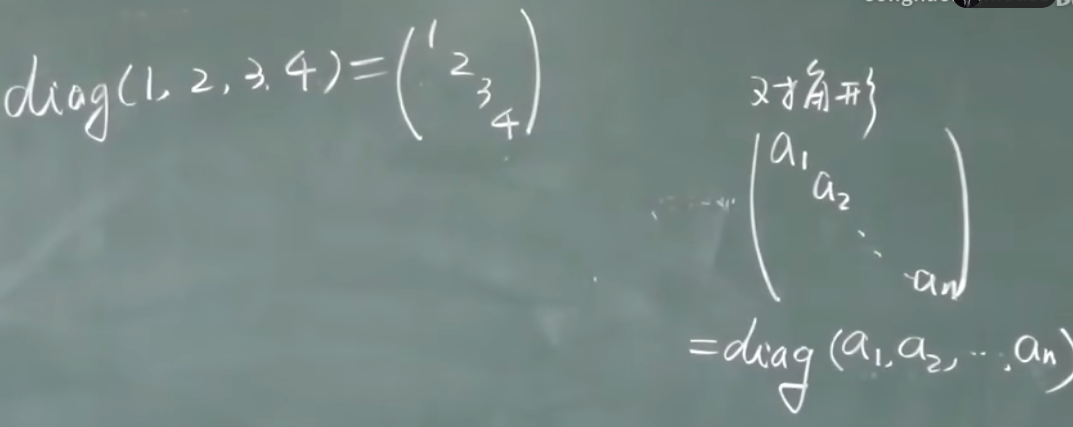 diag(1, 2, 3, 4) = (1 2 3 4)
对角形
(a₁ a₂ ⋱ aₙ)
= diag (a₁, a₂, ⋯, aₙ)